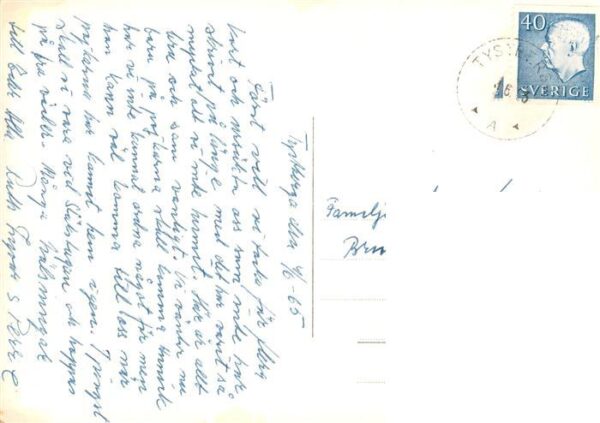 Tystberga den 4/6-65
Först vill vi tacka för
Kort och ursäkta oss som inte har
skrivit på länge men det har varit så
mycket att vi inte hunnit. Här är allt
bra och som vanligt. Vi väntar nu
bara på pojkarna skall komma
har vi inte kunnat ordna något för men
han kann väl komma till oss när
pojkarna har kommit hem igen. I pingst
skall vi vara vid Sjöstugan och hoppas
på fint väder. Många hälsningar
till Eder Alla Ruth
Familj
40
SVERIGE
TYST
A